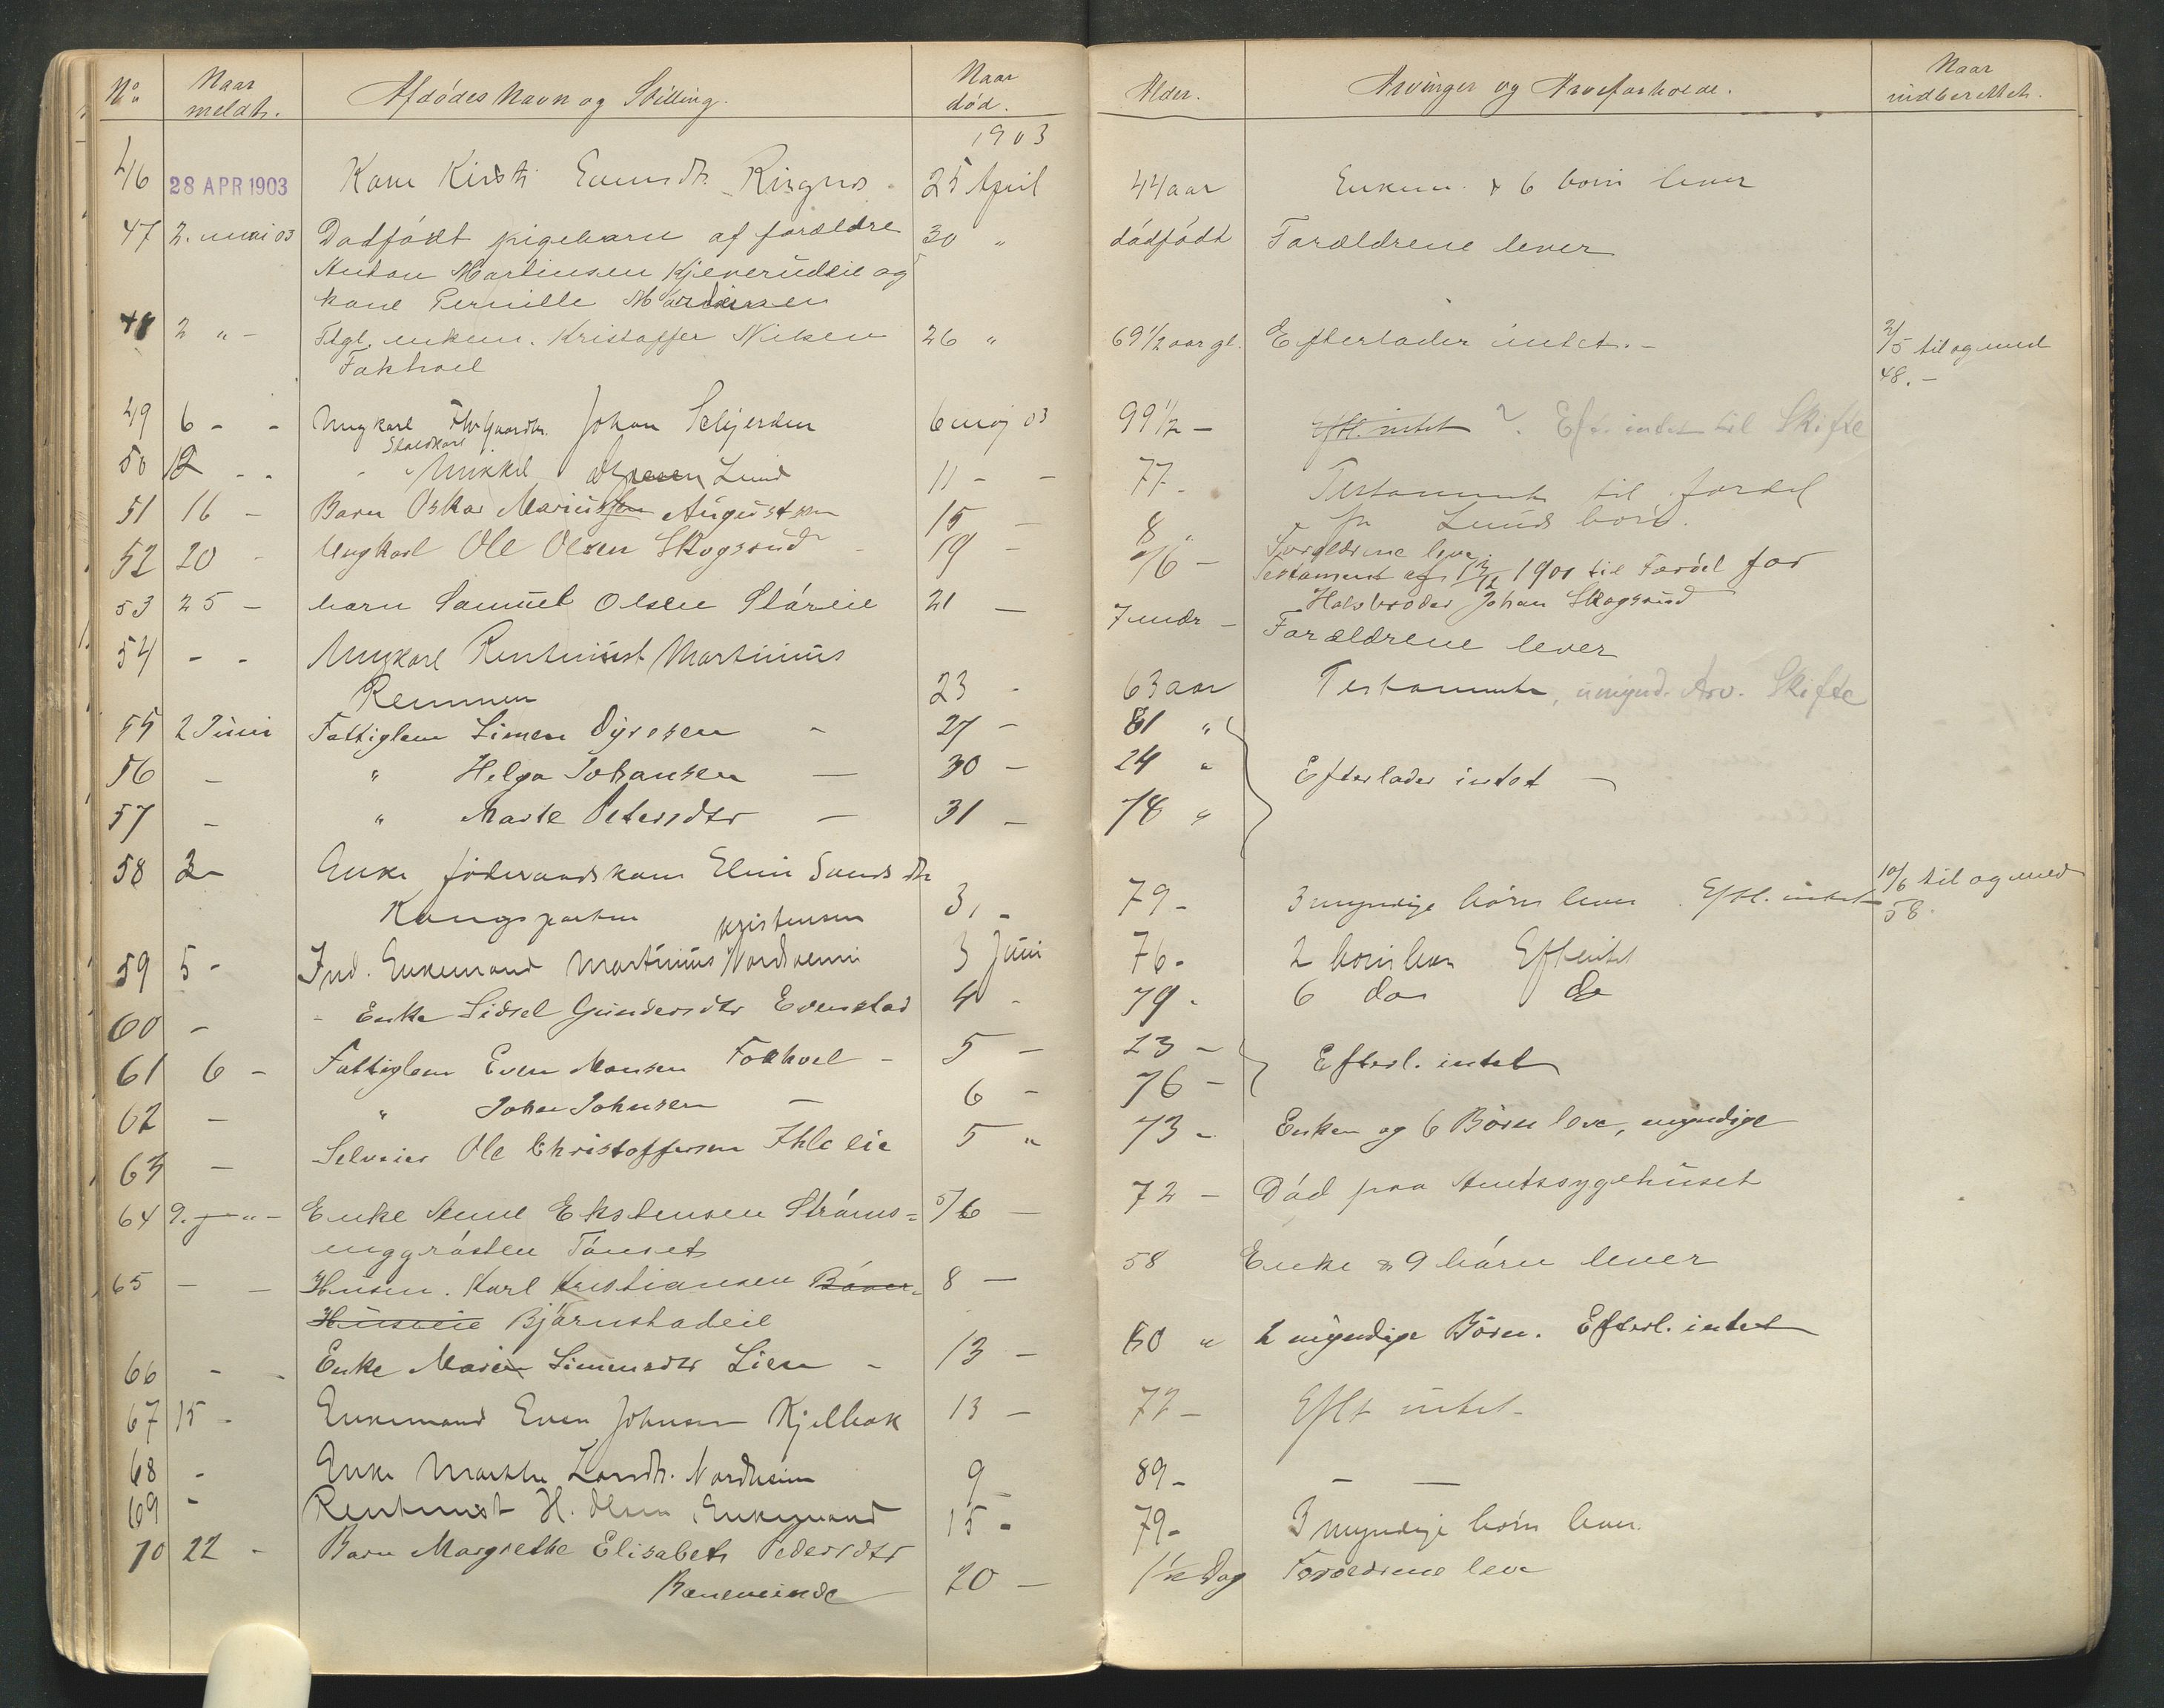 No. Naar meldt. Afdödes Navn og Stilling. Naar död. Alder. Arvinger og Arveforholde. Naar indberettet.
1903
46 28 APR 1903 Kone Kirsti Evensdtr. Ringnes 25 April 44 aar Enkem. & 6 börn lever
47 2. mai 03 Dödfödt pigebarn af forældre 30 " dödfödt Forældrene lever
Anton Martinsen Kjeverudeie og
kone Pernille Martinsen
48 2 " - Ftgl. enkem. Kristoffer Nilsen 26 " 69 1/2 aar gl. Efterlader intet. - 2/5 til og med
Fokhoel 48. -
49 6 - - Ungkarl Fhv Gaardbr. Johan Schjerden 6 mai 03 99 1/2 - Eftl. intet ? Ef. intet til Skifte
Staldkarl
50 12 - - " Mikkel Olsen Lund 11 - - 77 - Testamente til fordel
51 16 - Barn Oskar Mariussen Augustsen 15 - 8 " for Lunds börn.
52 20 - Ungkarl Ole Olsen Skogsrud 19 - 76 - Forældrene leve.
Testament af 13/12 1901 til Fordel for
Halvbroder Johan Skogsrud
53 25 - barn Samuel Olsen Störeie 21 - 7 mdr - Forældrene lever
54 - - Ungkarl Rentenist Martinius
Remmen 23 - 63 aar Testamente, umynd. Arv. Skifte
55 2 Juni Fattiglem Simen Dyresen - 27 - 81 "
56 - " Helga Johansen - 30 - 24 " Efterlader intet -
57 - " Marte Petersdtr - 31 - 78 "
58 3 - Enke föderaadskone Eline Smedsdtr
Kongsparten 31 - 79 - 3 myndige börn lever. Eftl. intet 10/6 til og med
58.
59 5 - Ind. Enkemand Martinius Kristensen Nordheim 3 Juni 76 - 2 börn lever Eftl intet
60 - - Enke Sidsel Gundersdtr Evenstad 4 - 79 - 6 do do
61 6 - Fattiglem Even Monsen Fokhoel - 5 - 23 -
62 - " Johan Johnsen - 6 - 76 - Efterl. intet
63 - Selveier Ole Christoffersen Ihle eie 5 " 73 - Enken og 6 Börn leve, myndige
64 9. j " - Enke Anne Ekstensen Ströms= 5/6 - 72 - Död paa Amtssygehuset
enggrösten Tönset
65 - - Husm. Karl Kristiansen Böver- 8 - 58 Enke & 9 börn lever
Huseeie Björnstadeie
66 - - Enke Maren Simensdtr Lien - 13 - 80 " 2 myndige Börn. Efterl. intet
67 15 - Enkemand Even Johnsen Kjelbak 13 - 72 - Eflt intet -
68 - Enke Marthe Larsdtr. Nordheim 9 - 89 - - -
69 - Rentenist H. Olsen Enkemand 15 - 79 - 3 myndige börn lever.
70 22 - Barn Margrethe Elisabeth Pedersdtr
Baneveinde 20 - 1/2 Dag Forældrene leve